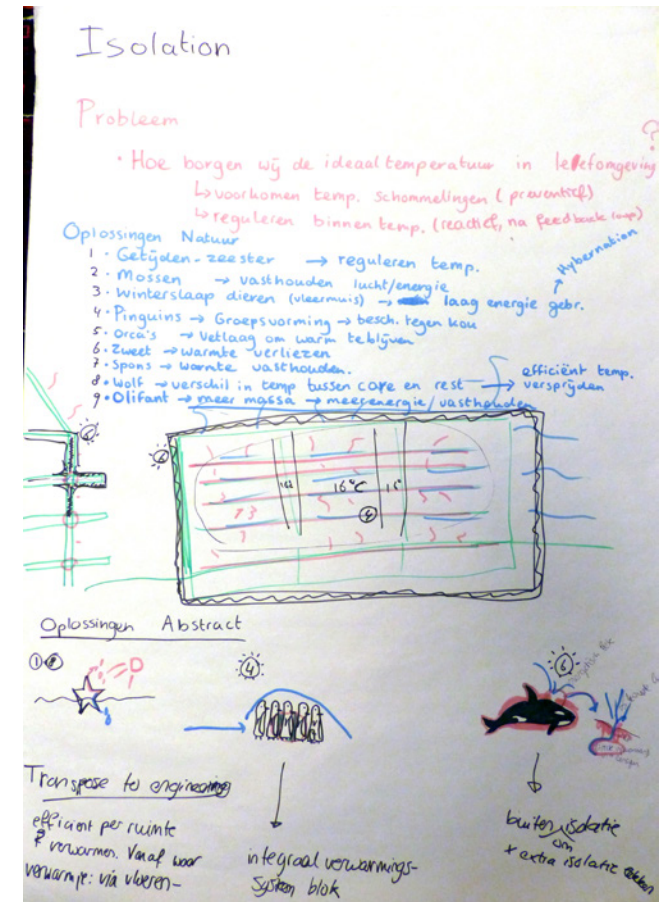 Isolation
Probleem
?
• Hoe borgen wij de ideaal temperatuur in leefomgeving
↳ voorkomen temp. schommelingen (preventief)
↳ reguleren binnen temp. (reactief, na feedback loop)
Oplossingen Natuur
Hybernation
1 • Getijden-zeester → reguleren temp.
2 • Mossen → vasthouden lucht/energie
3 • Winterslaap dieren (vleermuis) → laag energie gebr.
4 • Pinguins → Groepsvorming → besch. tegen kou
5 • Orca's → Vetlaag om warm te blijven
6 • Zweet → warmte verliezen
7 • Spons → warmte vasthouden.
8 • Wolf → verschil in temp tussen core en rest → efficiënt temp. versprijden
9 • Olifant → meer massa → meer energie/vasthouden
16°C
4
Oplossingen Abstract
1 8
4
6
Transpose to engineering
efficient per ruimte
verwarmen. Vanaf waar
verwarm je: via vloeren-
integraal verwarmings-
system blok
buiten isolatie
om
+ extra isolatie